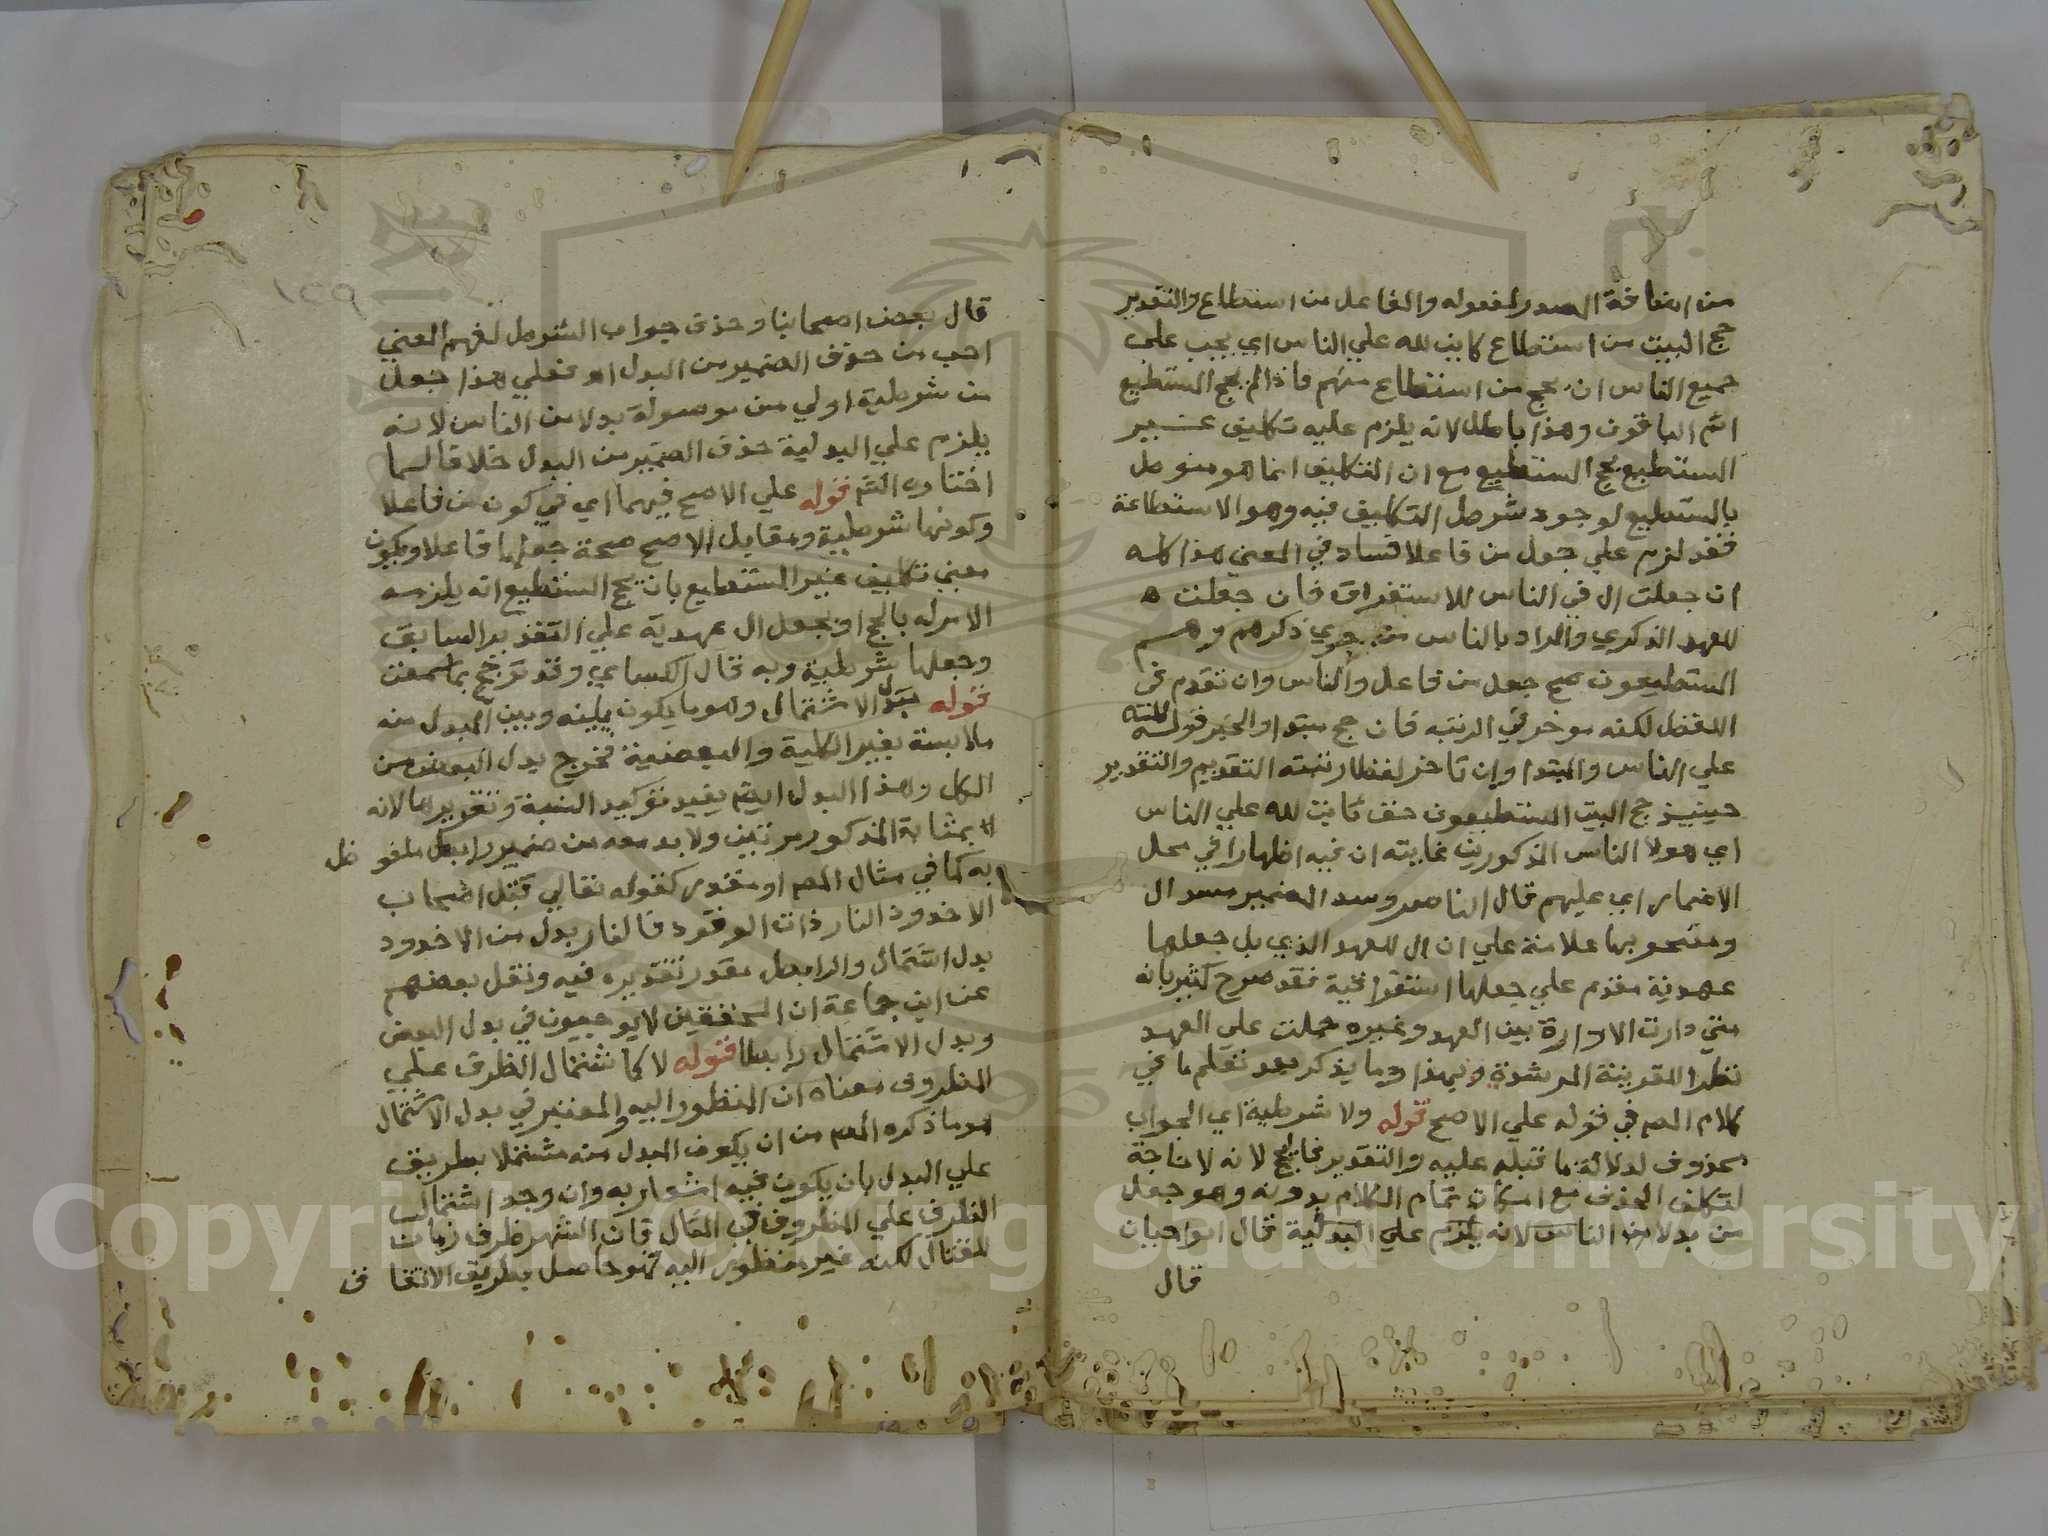 من اضافة المصدر لمفعوله والفاعل من استطاع والتقدير
حج البيت من استطاع كاين لله علي الناس اي يجب علي
جميع الناس ان يحج من استطاع منهم فاذا لم يحج المستطيع
اثم الباقون وهذا باطل لانه يلزم عليه تكليف غير
المستطيع بحج المستطيع مع ان التكليف انما هو منوط
بالمستطيع لوجود شرط التكليف فيه وهو الاستطاعة
فقد لزم علي جعل من فاعلا فساد في المعني هذا كله
ان جعلت ال في الناس للاستغراق فان جعلت ه
للعهد الذكري والمراد بالناس من جري ذكرهم وهم
المستطيعون صح جعل من فاعل والناس وان تقدم في
اللفظ لكنه موخر في الرتبه فان حج مبتدا والخبر قوله لله
علي الناس والمبتدا وان تاخر لفظا رتبته التقديم والتقدير
حينيذ حج البيت المستطيعون حق ثابت لله علي الناس
اي هولا الناس المذكورين غايته ان فيه اظهارا في محل
الاضمار اي عليهم قال الناصر وسد الضمير مسد ال
ومصحوبها علامة علي ان ال للعهد الذي بل جعلها
عهدية مقدم علي جعلها استغراقية فقد صرح كثير بانه
متي دارت الارادة بين العهد وغيره حملت علي العهد
نظرا للقرينة المرشدة وبهذا وما يذكر بعد تعلم ما في
كلام المص في قوله علي الاصح قوله ولا شرطية اي الجواب
محذوف لدلالة ما قبله عليه والتقدير فليحج لانه لا حاجة
لتكلف الحذف مع امكان تمام الكلام بدونه وهو جعل
من بدلا من الناس لانه يلزم علي البدلية قال ابو حيان
قال
١٢٩
قال بعض اصحابنا وحذف جواب الشرط لفهم المعني
احب من حذف الضمير من البدل اه فعلي هذا جعل
من شرطية اولي من موصولة بدلا من الناس لانه
يلزم علي البدلية حذف الضمير من البدل خلافا لما
اختاره الشم قوله علي الاصح فيهما اي في كون من فاعلا
وكونها شرطية ومقابل الاصح صحة جعلها فاعلا ويكون
معني تكليف غير المستطيع بان يحج المستطيع انه يلزمه
الامر له بالحج او بجعل ال عهدية علي التقدير السابق
وجعلها شرطية وبه قال الكساي وقد ترجح بما سمعت
قوله بدل الاشتمال وهو ما يكون بينه وبين المبدل منه
ملابسة بغير الكلية والبعضية فخرج بدل البعض من
الكل وهذا البدل ايضم يفيد توكيد النسبة وتقريرها لانه
بمثابة المذكور مرتين ولابد معه من ضمير رابط ملفوظ
به كما في مثال المص او مقدر كقوله تعالي قتل اصحاب
الاخدود النار ذات الوقود فالنار بدل من الاخدود
بدل اشتمال والرابط مقدر تقديره فيه ونقل بعضهم
عن ابن جماعة ان المحققين لا يوجبون في بدل البعض
وبدل الاشتمال رابطا قوله لا كما شتمال الظرف علي
المظروف معناه ان المنظور اليه والمعتبر في بدل الاشتمال
هو ما ذكره المص من ان يكون المبدل منه مشتملا بطريق
علي البدل بان يكون فيه اشعار به وان وجد اشتمال
الظرف علي المظروف في المثال فان الشهر ظرف زمان
للقتال لكنه غير منظور اليه فهو حاصل بطريق الاتفاق
Copyright © King Saud University